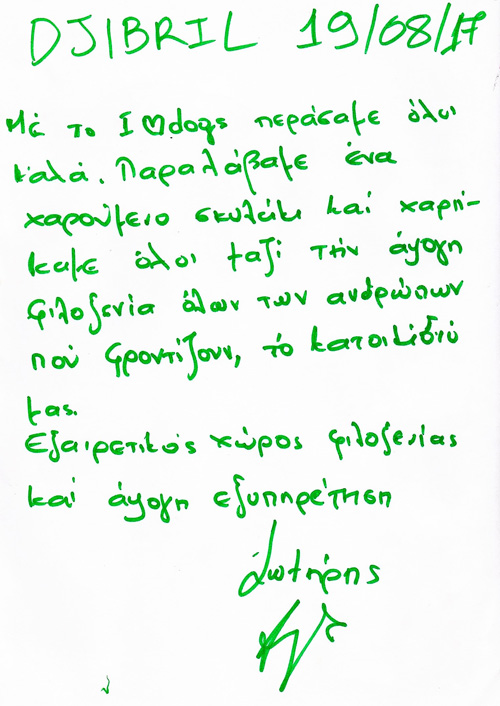 DJIBRIL 19/08/17
Μέ το I ♡dogs περάσαμε όλοι
καλά. Παραλάβαμε ένα
χαρούμενο σκυλάκι καί χαρή-
καμε όλοι μαζί την άψογη
φιλοξενία όλων των ανθρώπων
πού φροντίζουν, το κατοικίδιό
μας.
Εξαιρετικός χώρος φιλοξενίας
καί άψογη εξυπηρέτηση
Σωτήρης